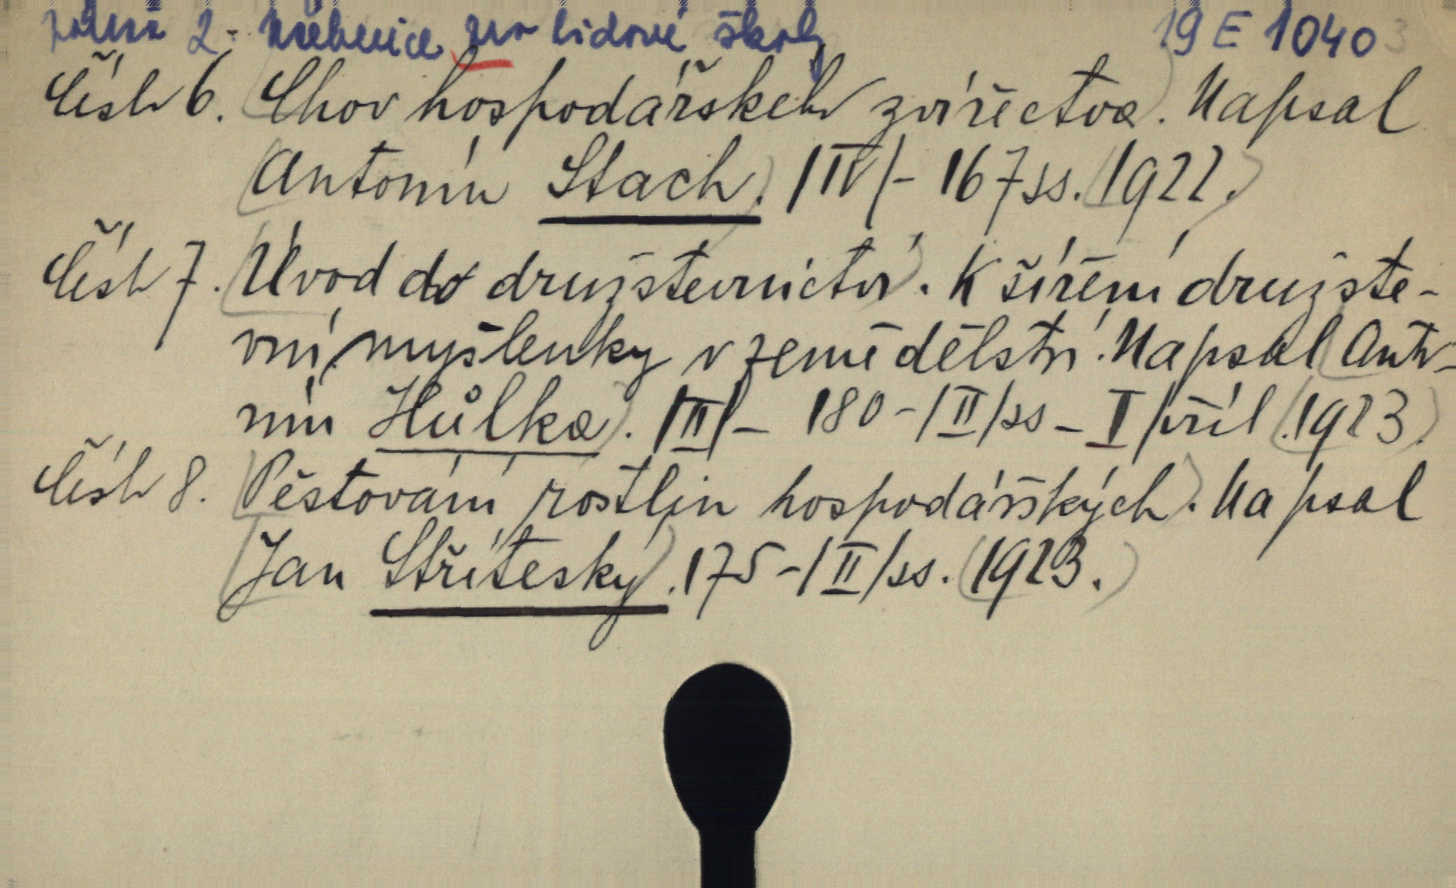 2. Učebnice pro lidové školy 19 E 1040
Část 6. Chov hospodářskeh zvířectva. Napsal
Antonín Stach. /IV/- 167 ss. 1922.
Část 7. Úvod do družstevnictví. K šíření družste-
vní myšlenky v zemědělství. Napsal Anto-
nín Hůlka. /III/- 180-/II/ss - I příl. 1923.
Část 8. Pěstování rostlin hospodářských. Napsal
Jan Stříteský. 175-/II/ss. 1923.